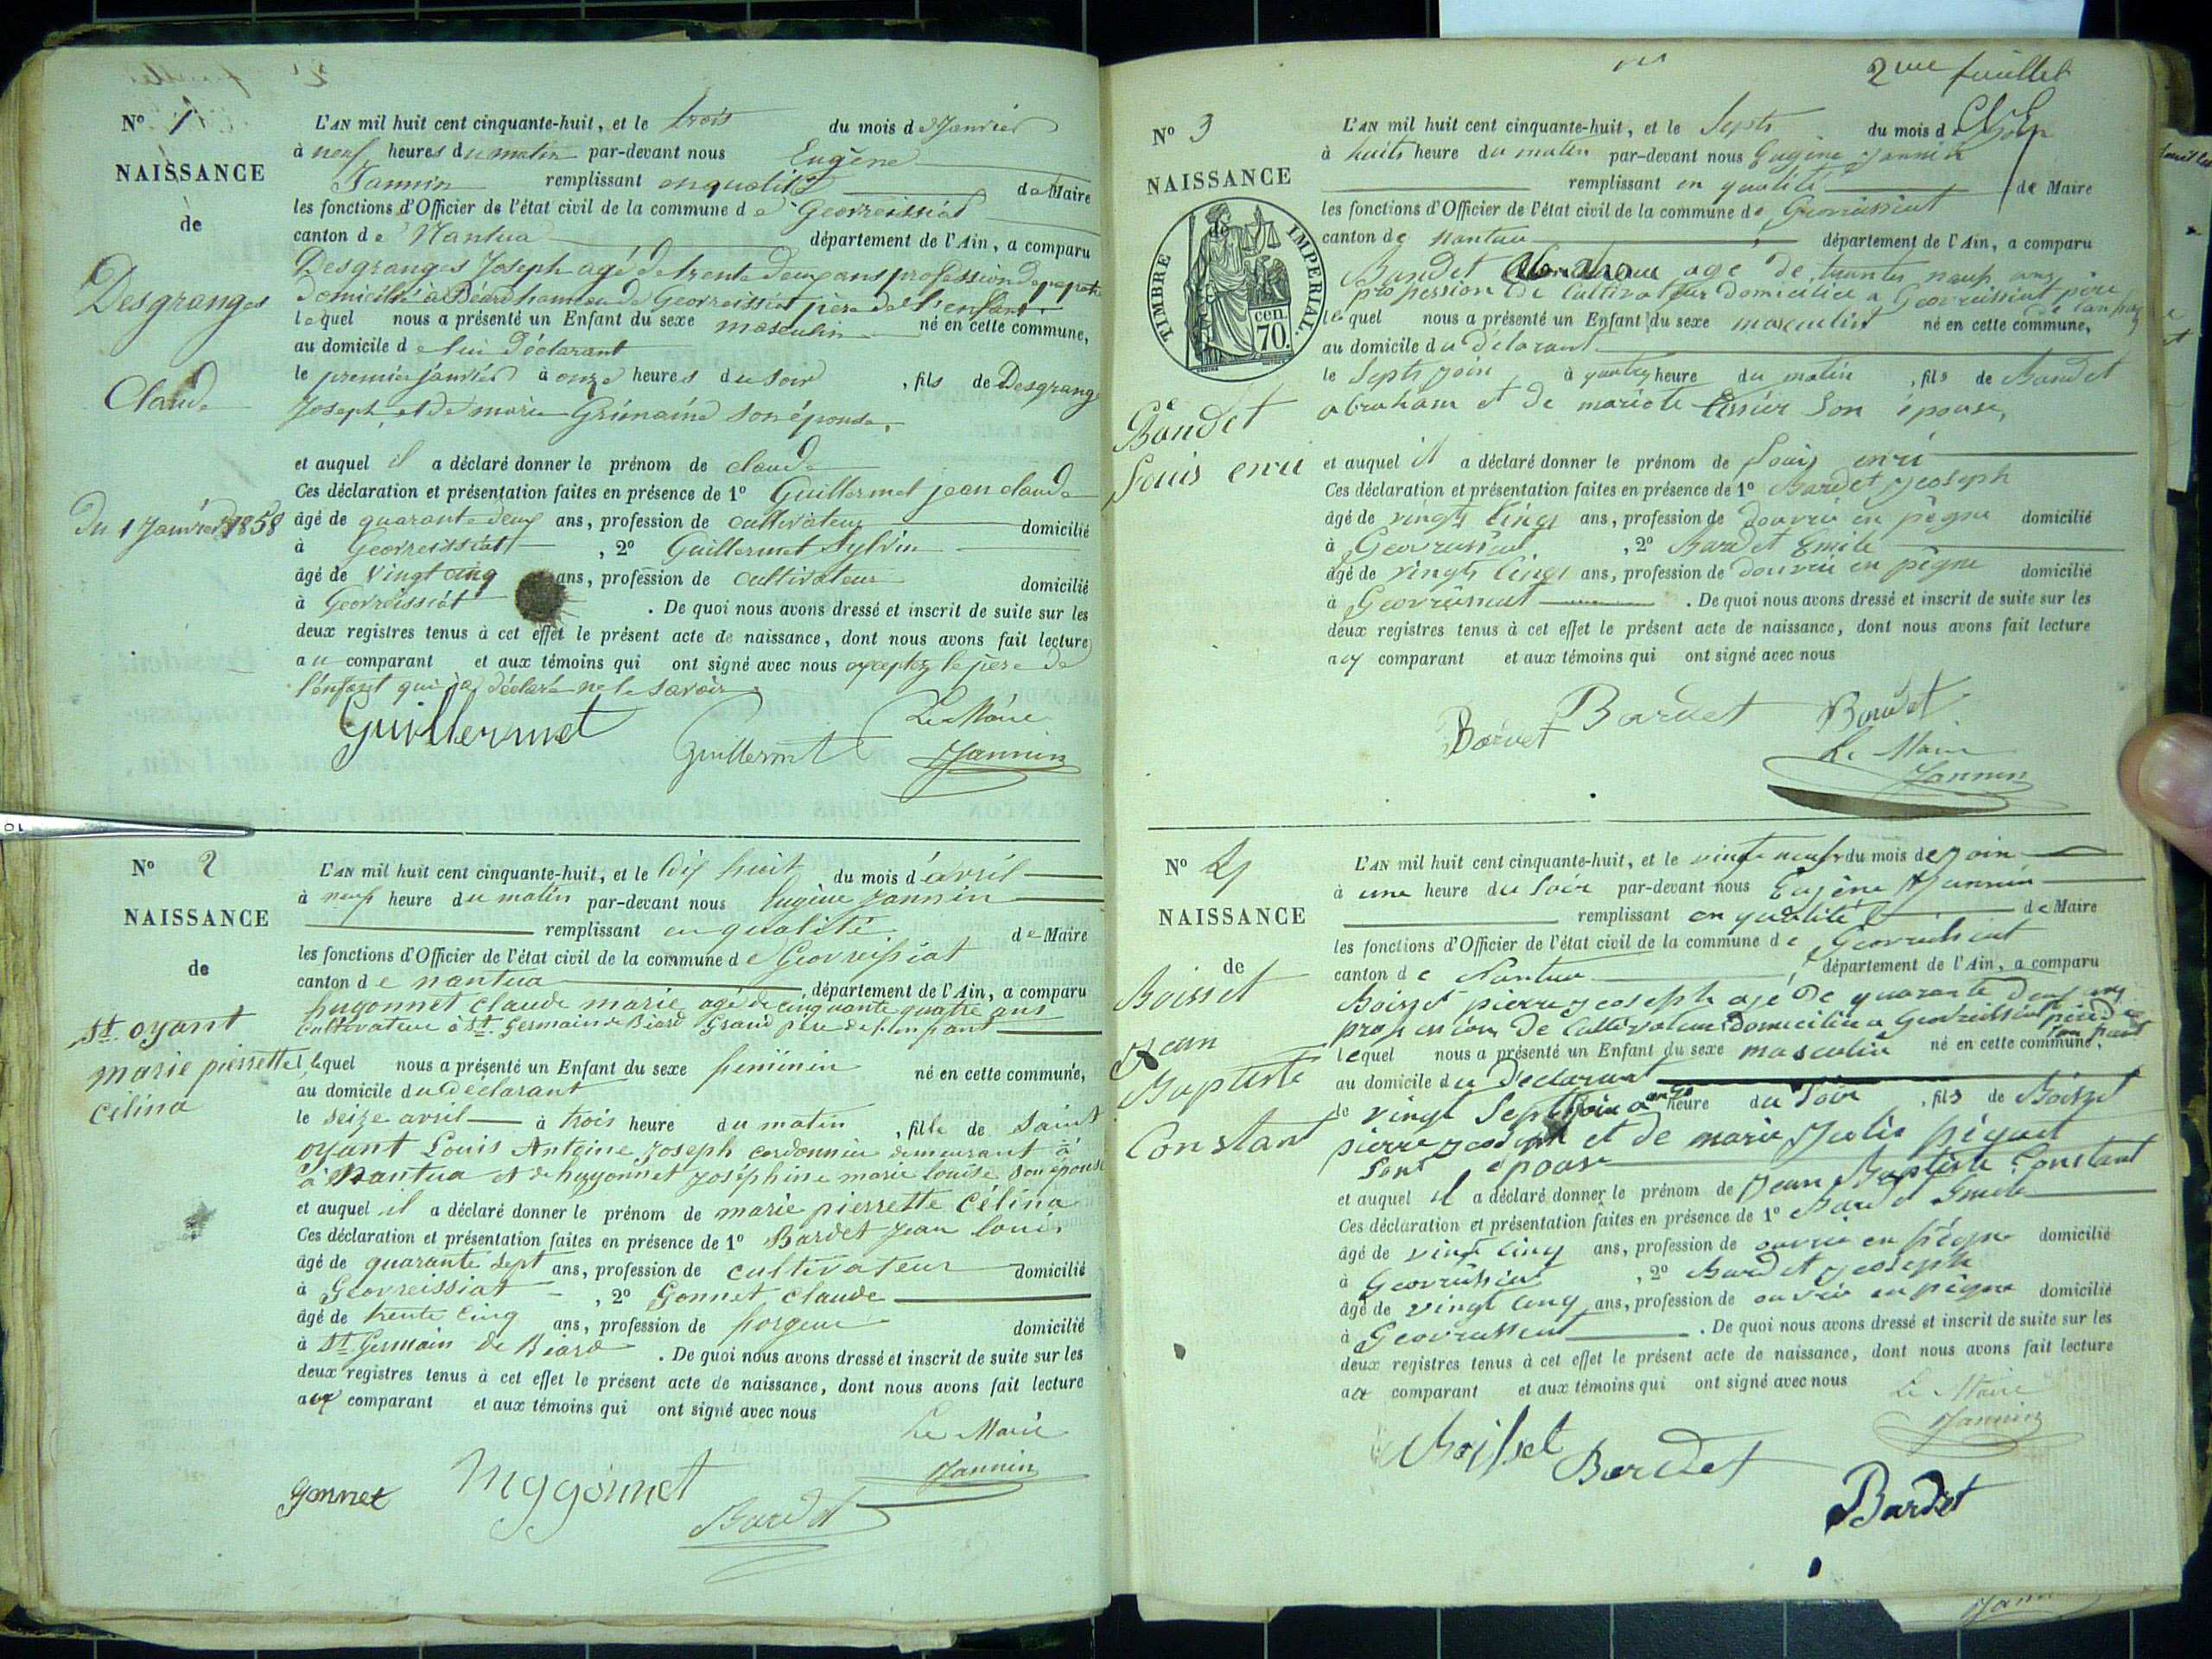 N° 1
NAISSANCE
de
Desgranges
Claude
Du 1 Janvier 1858
L'AN mil huit cent cinquante-huit, et le trois du mois de Janvier
à neuf heures du matin par-devant nous Eugène
Jannin remplissant en qualité de Maire
les fonctions d'Officier de l'état civil de la commune de Geovreissiat
canton de Nantua département de l'Ain, a comparu
Desgranges Joseph agé de trente deux ans profession de
domicilié à Béard hameau de Geovreissiat père de l'enfant
lequel nous a présenté un Enfant du sexe masculin né en cette commune,
au domicile de lui Déclarant
le premier janvier à onze heures du soir, fils de Desgrange
Joseph et de marie son épouse,
et auquel il a déclaré donner le prénom de claude
Ces déclaration et présentation faites en présence de 1° Guillermet jean claude
âgé de quarante deux ans, profession de cultivateur domicilié
à Geovreissiat, 2° Guillermet Sylvin
âgé de Vingt cinq ans, profession de cultivateur domicilié
à Geovreissiat. De quoi nous avons dressé et inscrit de suite sur les
deux registres tenus à cet effet le présent acte de naissance, dont nous avons fait lecture
au comparant et aux témoins qui ont signé avec nous exceptez le père de
l'enfant qui a déclaré ne le savoir
Guillermet Guillermet Le Maire
Jannin
N° 2
NAISSANCE
de
St. oyant
marie pierrette
célina
L'AN mil huit cent cinquante-huit, et le dix huit du mois d'avril
à neuf heure du matin par-devant nous Eugène Jannin
remplissant en qualité de Maire
les fonctions d'Officier de l'état civil de la commune de Geovreissiat
canton de nantua, département de l'Ain, a comparu
hugonnet claude marie agé de cinquante quatre ans
cultivateur à St. Germain de Béard Grand père de l'enfant
lequel nous a présenté un Enfant du sexe féminin né en cette commune,
au domicile du Déclarant
le seize avril à trois heure du matin, fille de Saint
oyant Louis Antoine Joseph cordonnier demeurant à
à Nantua et de hugonnet joséphine marie louise son épouse
et auquel il a déclaré donner le prénom de marie pierrette célina
Ces déclaration et présentation faites en présence de 1° Bardet Jean louis
âgé de quarante sept ans, profession de cultivateur domicilié
à Geovreissiat, 2° Gonnet claude
âgé de trente cinq ans, profession de forgeur domicilié
à St. Germain de Béard. De quoi nous avons dressé et inscrit de suite sur les
deux registres tenus à cet effet le présent acte de naissance, dont nous avons fait lecture
aux comparant et aux témoins qui ont signé avec nous
Le Maire
Jannin
gonnet hugonnet
Bardet
2me feuillet
N° 3
NAISSANCE
de
TIMBRE IMPERIAL.
70 cen.
Bardet
Louis enri
L'AN mil huit cent cinquante-huit, et le Septs du mois de
à huits heure du matin par-devant nous Eugène Jannin
remplissant en qualité de Maire
les fonctions d'Officier de l'état civil de la commune de Geovreissiat
canton de nantua, département de l'Ain, a comparu
Bardet age de trentes neuf ans
profession de Cultivateur domicilié a Geovreissiat père
de l'enfant
lequel nous a présenté un Enfant du sexe masculin né en cette commune,
au domicile du Déclarant
le Septs join à quatre heure du matin, fils de Bardet
abraham et de mariete tissier Son épouse,
et auquel il a déclaré donner le prénom de Louis enri
Ces déclaration et présentation faites en présence de 1° Bardet joseph
âgé de vingts cinq ans, profession de douvrié en peigne domicilié
à Geovreissiat, 2° Bardet Emile
âgé de vingts cinq ans, profession de douvrié en peigne domicilié
à Geovreissiat. De quoi nous avons dressé et inscrit de suite sur les
deux registres tenus à cet effet le présent acte de naissance, dont nous avons fait lecture
aux comparant et aux témoins qui ont signé avec nous
Bardet Bardet Bardet
Le Maire
Jannin
N° 4
NAISSANCE
de
Boisset
Jean
Baptiste
Constant
L'AN mil huit cent cinquante-huit, et le vingt neuf du mois de join
à une heure du Soir par-devant nous Eugène Jannin
remplissant en qualité de Maire
les fonctions d'Officier de l'état civil de la commune de Geovreissiat
canton de Nantua, département de l'Ain, a comparu
Boisset pierre joseph agé de quarante deux ans
profession de Cultivateur domicilié a Geovreissiat père de
l'enfant
lequel nous a présenté un Enfant du sexe masculin né en cette commune,
au domicile du Déclarant
le vingt Sept join a onze heure du Soir, fils de Boisset
pierre joseph et de marie Julie
Son épouse
et auquel il a déclaré donner le prénom de Jean Baptiste Constant
Ces déclaration et présentation faites en présence de 1° Bardet Emile
âgé de vingt cinq ans, profession de ouvrié en peigne domicilié
à Geovreissiat, 2° Bardet joseph
âgé de vingt cinq ans, profession de ouvrié en peigne domicilié
à Geovreissiat. De quoi nous avons dressé et inscrit de suite sur les
deux registres tenus à cet effet le présent acte de naissance, dont nous avons fait lecture
aux comparant et aux témoins qui ont signé avec nous
Le Maire
Jannin
Boisset Bardet
Bardet